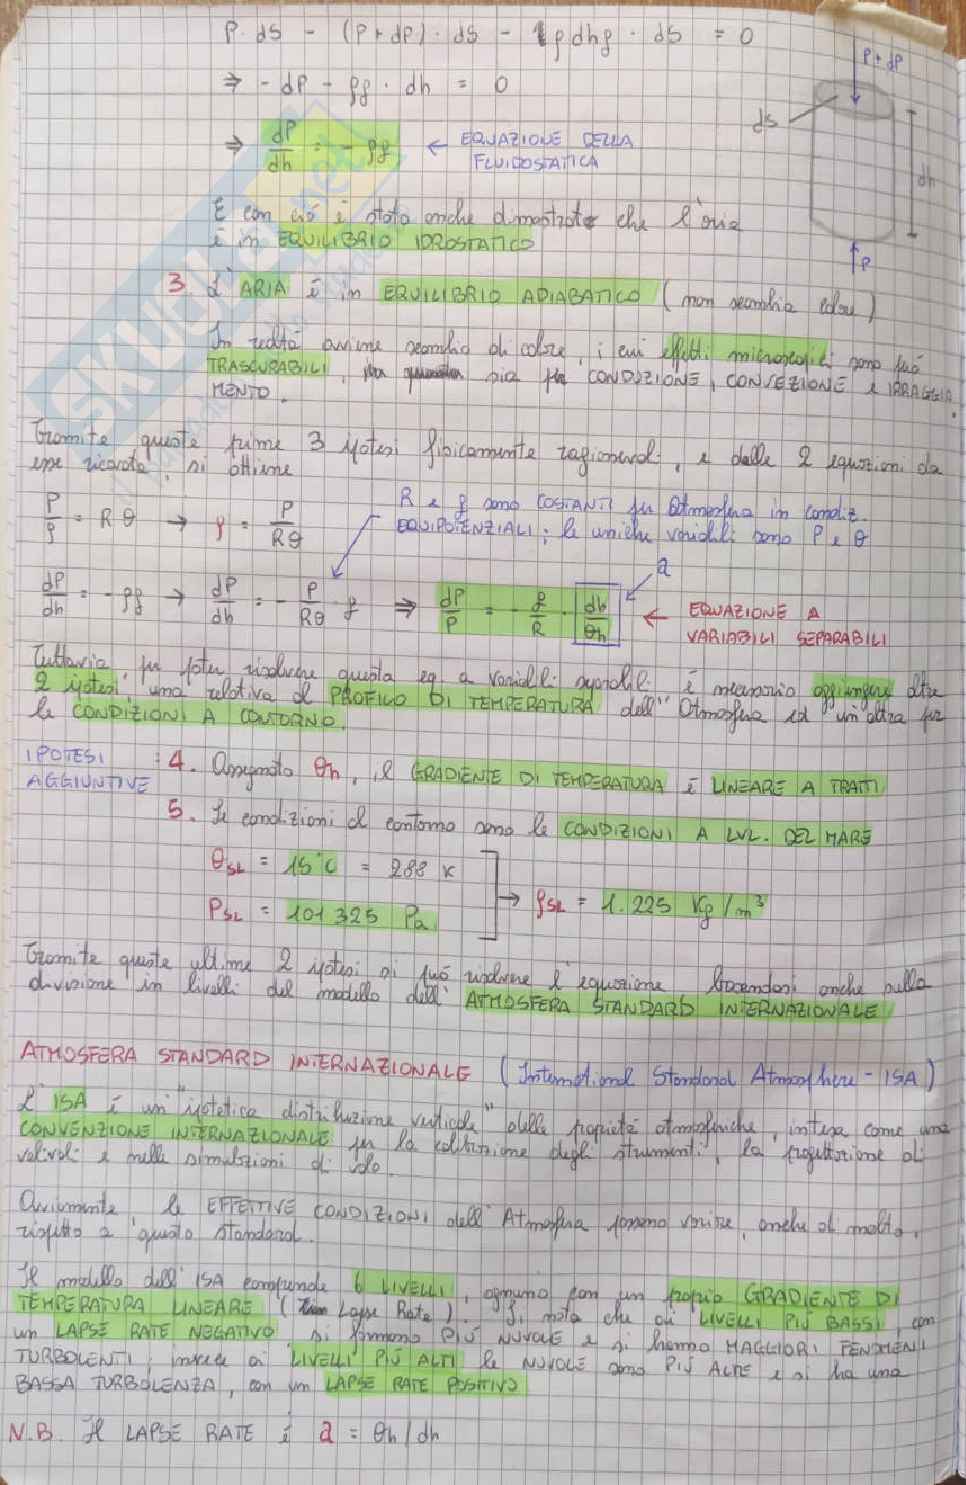 P · dS - (P + dP) · dS - ρ dh g · dS = 0
P + dP
dS
dh
P
⇒ - dP - ρg · dh = 0
⇒ dP/dh = - ρg ← EQUAZIONE DELLA
FLUIDOSTATICA
E con ciò è stata anche dimostrato che l'aria
è in EQUILIBRIO IDROSTATICO
3 L'ARIA è in EQUILIBRIO ADIABATICO (non scambia calore)
In realtà avviene scambio di calore, i cui effetti microscopici sono più
TRASCURABILI, sia per CONDUZIONE, CONVEZIONE e IRRAGGIA
MENTO.
Tramite queste prime 3 ipotesi fisicamente ragionevoli, e dalle 2 equazioni da
esse ricavate, si ottiene
P/ρ = Rθ → ρ = P/Rθ
R e g sono COSTANTI per Atmosfera in condiz.
EQUIPOTENZIALI; le uniche variabili sono P e θ
dP/dh = - ρg → dP/dh = - P/Rθ g ⇒ dP/P = - g/R · dh/θh
a
← EQUAZIONE A
VARIABILI SEPARABILI
Tuttavia per poter risolvere questa eq a variabili separabili è necessario aggiungere altre
2 ipotesi, una relativa al PROFILO DI TEMPERATURA dell'Atmosfera ed un'altra per
le CONDIZIONI A CONTORNO.
IPOTESI : 4. Assegnato θh, il GRADIENTE DI TEMPERATURA è LINEARE A TRATTI
AGGIUNTIVE
5. Le condizioni al contorno sono le CONDIZIONI A LVL. DEL MARE
θSL = 15°C = 288 K
PSL = 101 325 Pa
→ ρSL = 1.225 Kg/m³
Tramite queste ultime 2 ipotesi si può risolvere l'equazione, basandosi anche sulla
divisione in livelli del modello dell'ATMOSFERA STANDARD INTERNAZIONALE
ATMOSFERA STANDARD INTERNAZIONALE (International Standard Atmosphere - ISA)
L'ISA è un "ipotetica distribuzione verticale" delle proprietà atmosferiche, intesa come una
CONVENZIONE INTERNAZIONALE per la calibrazione degli strumenti, la progettazione di
velivoli e nelle simulazioni di volo.
Ovviamente, le EFFETTIVE CONDIZIONI dell'Atmosfera possono variare, anche di molto,
rispetto a questo standard.
Il modello dell'ISA comprende 6 LIVELLI, ognuno con un proprio GRADIENTE DI
TEMPERATURA LINEARE ( Lapse Rate). Si nota che ai LIVELLI PIÙ BASSI, con
un LAPSE RATE NEGATIVO si formano PIÙ NUVOLE e si hanno MAGGIORI FENOMENI
TURBOLENTI, invece ai LIVELLI PIÙ ALTI le NUVOLE sono PIÙ ALTE e si ha una
BASSA TURBOLENZA, con un LAPSE RATE POSITIVO
N.B. Il LAPSE RATE è a = θh/dh